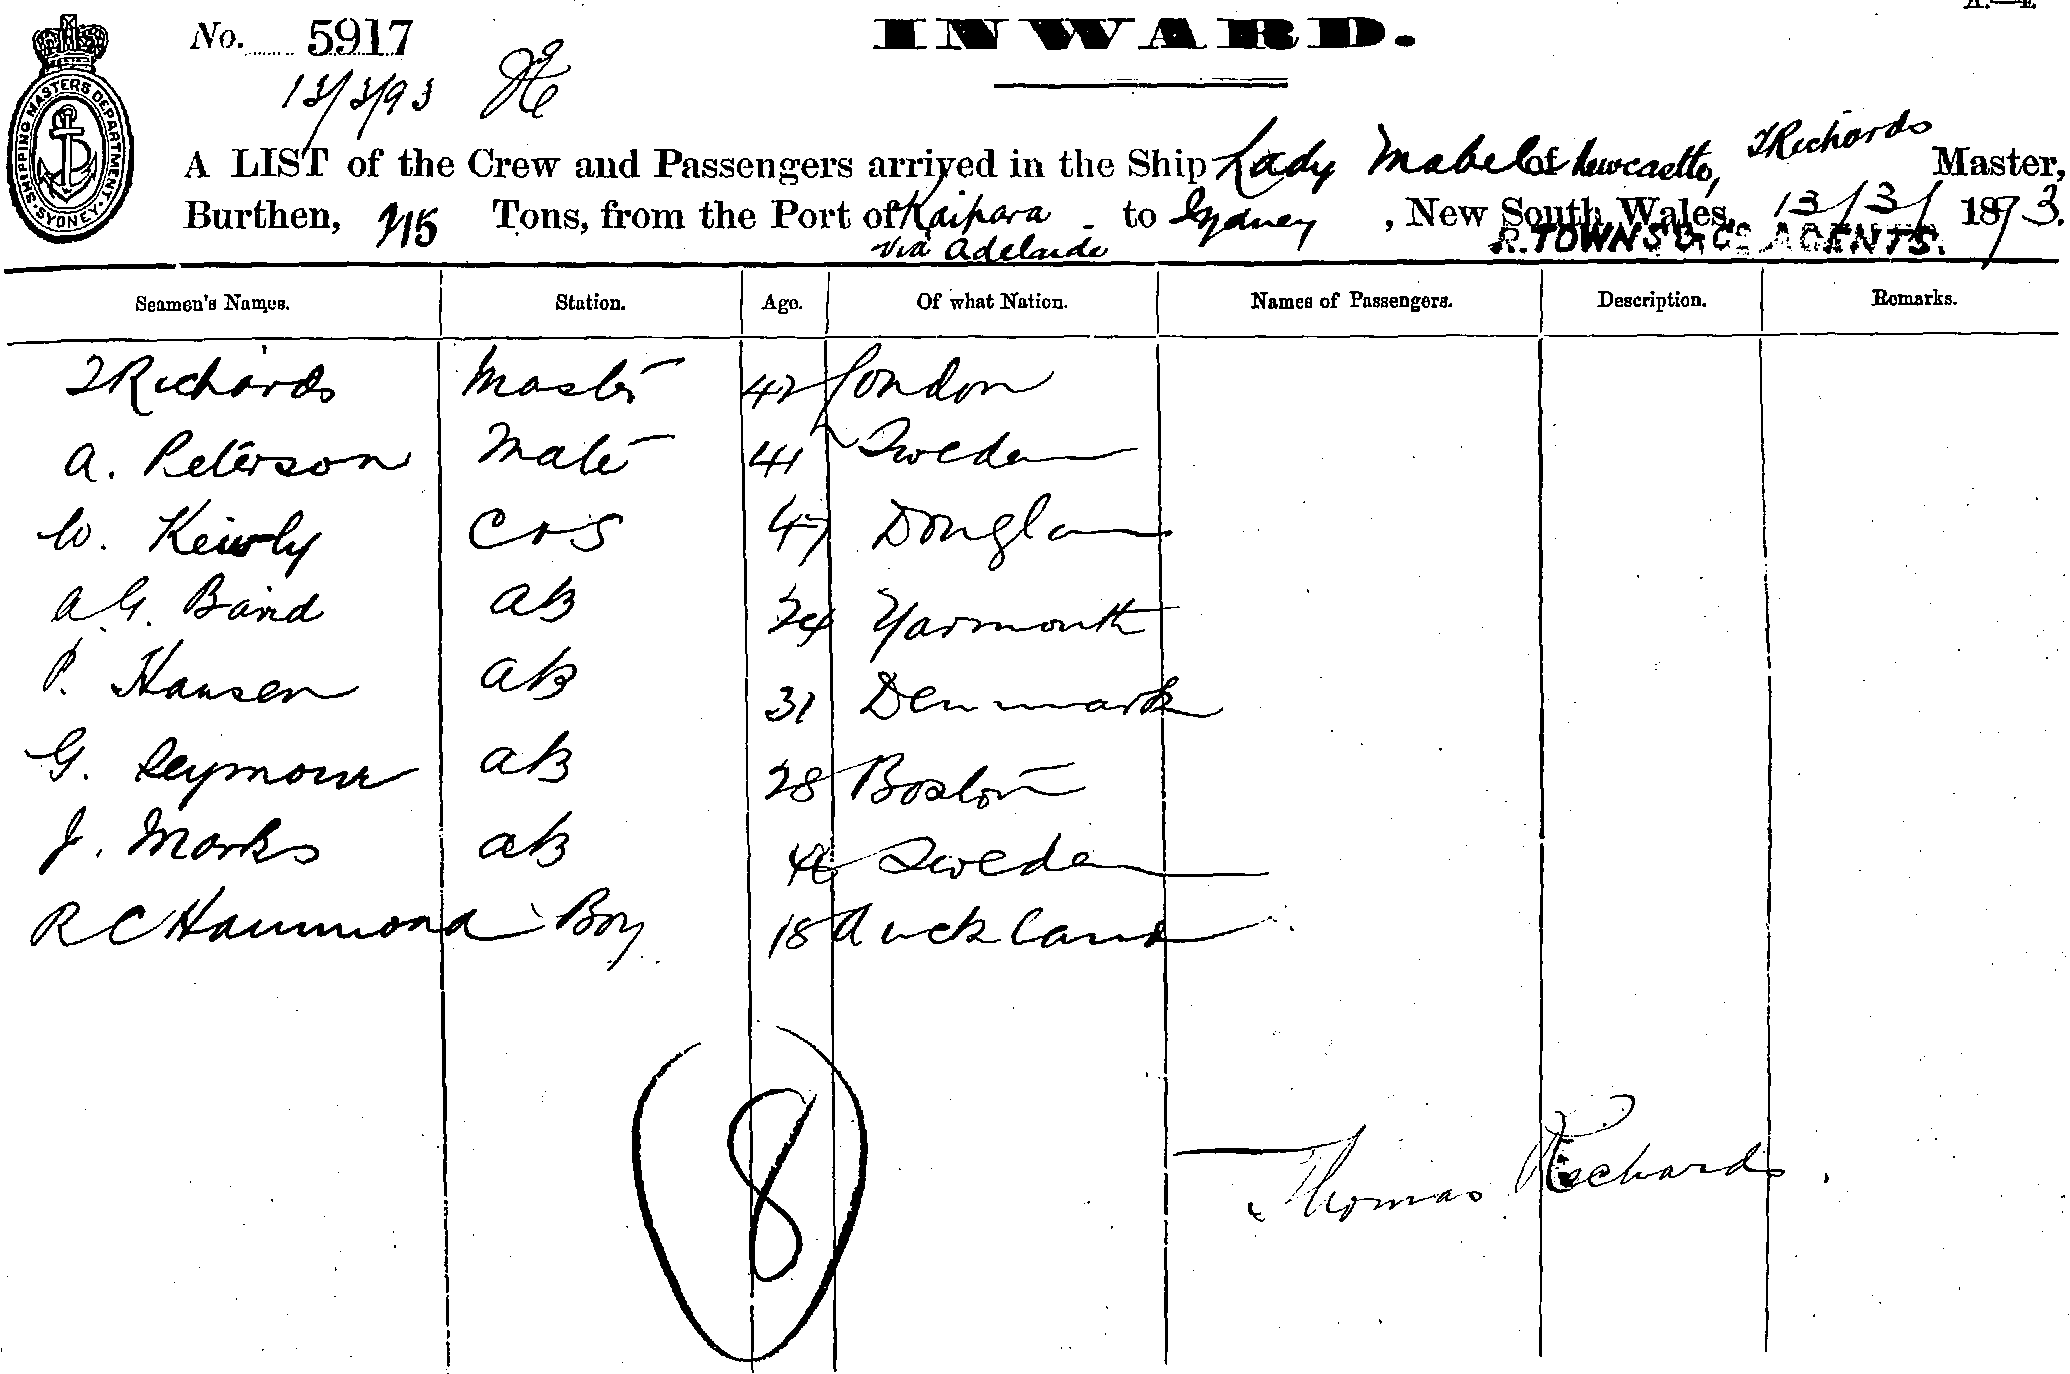 No. 5917
INWARD.
13/3/93
SHIPPING MASTERS DEPARTMENT SYDNEY
A LIST of the Crew and Passengers arrived in the Ship Lady Mabel of Newcastle, T Richards Master,
Burthen, Tons, from the Port of Kaipara to Sydney, New South Wales, 13/3/ 1893.
via Adelaide R. TOWNS & Co AGENTS.
Seamen's Names. Station. Age. Of what Nation. Names of Passengers. Description. Remarks.
T Richards Master 42 London
A. Peterson Mate 41 Sweden
W. Kewly C & S 47 Douglas
A G. Baird AB 24 Yarmouth
P. Hansen AB 31 Denmark
G. Seymour AB 28 Boston
J. Marks AB 46 Sweden
R C Hammond Boy 18 Auckland
8
Thomas Richards.